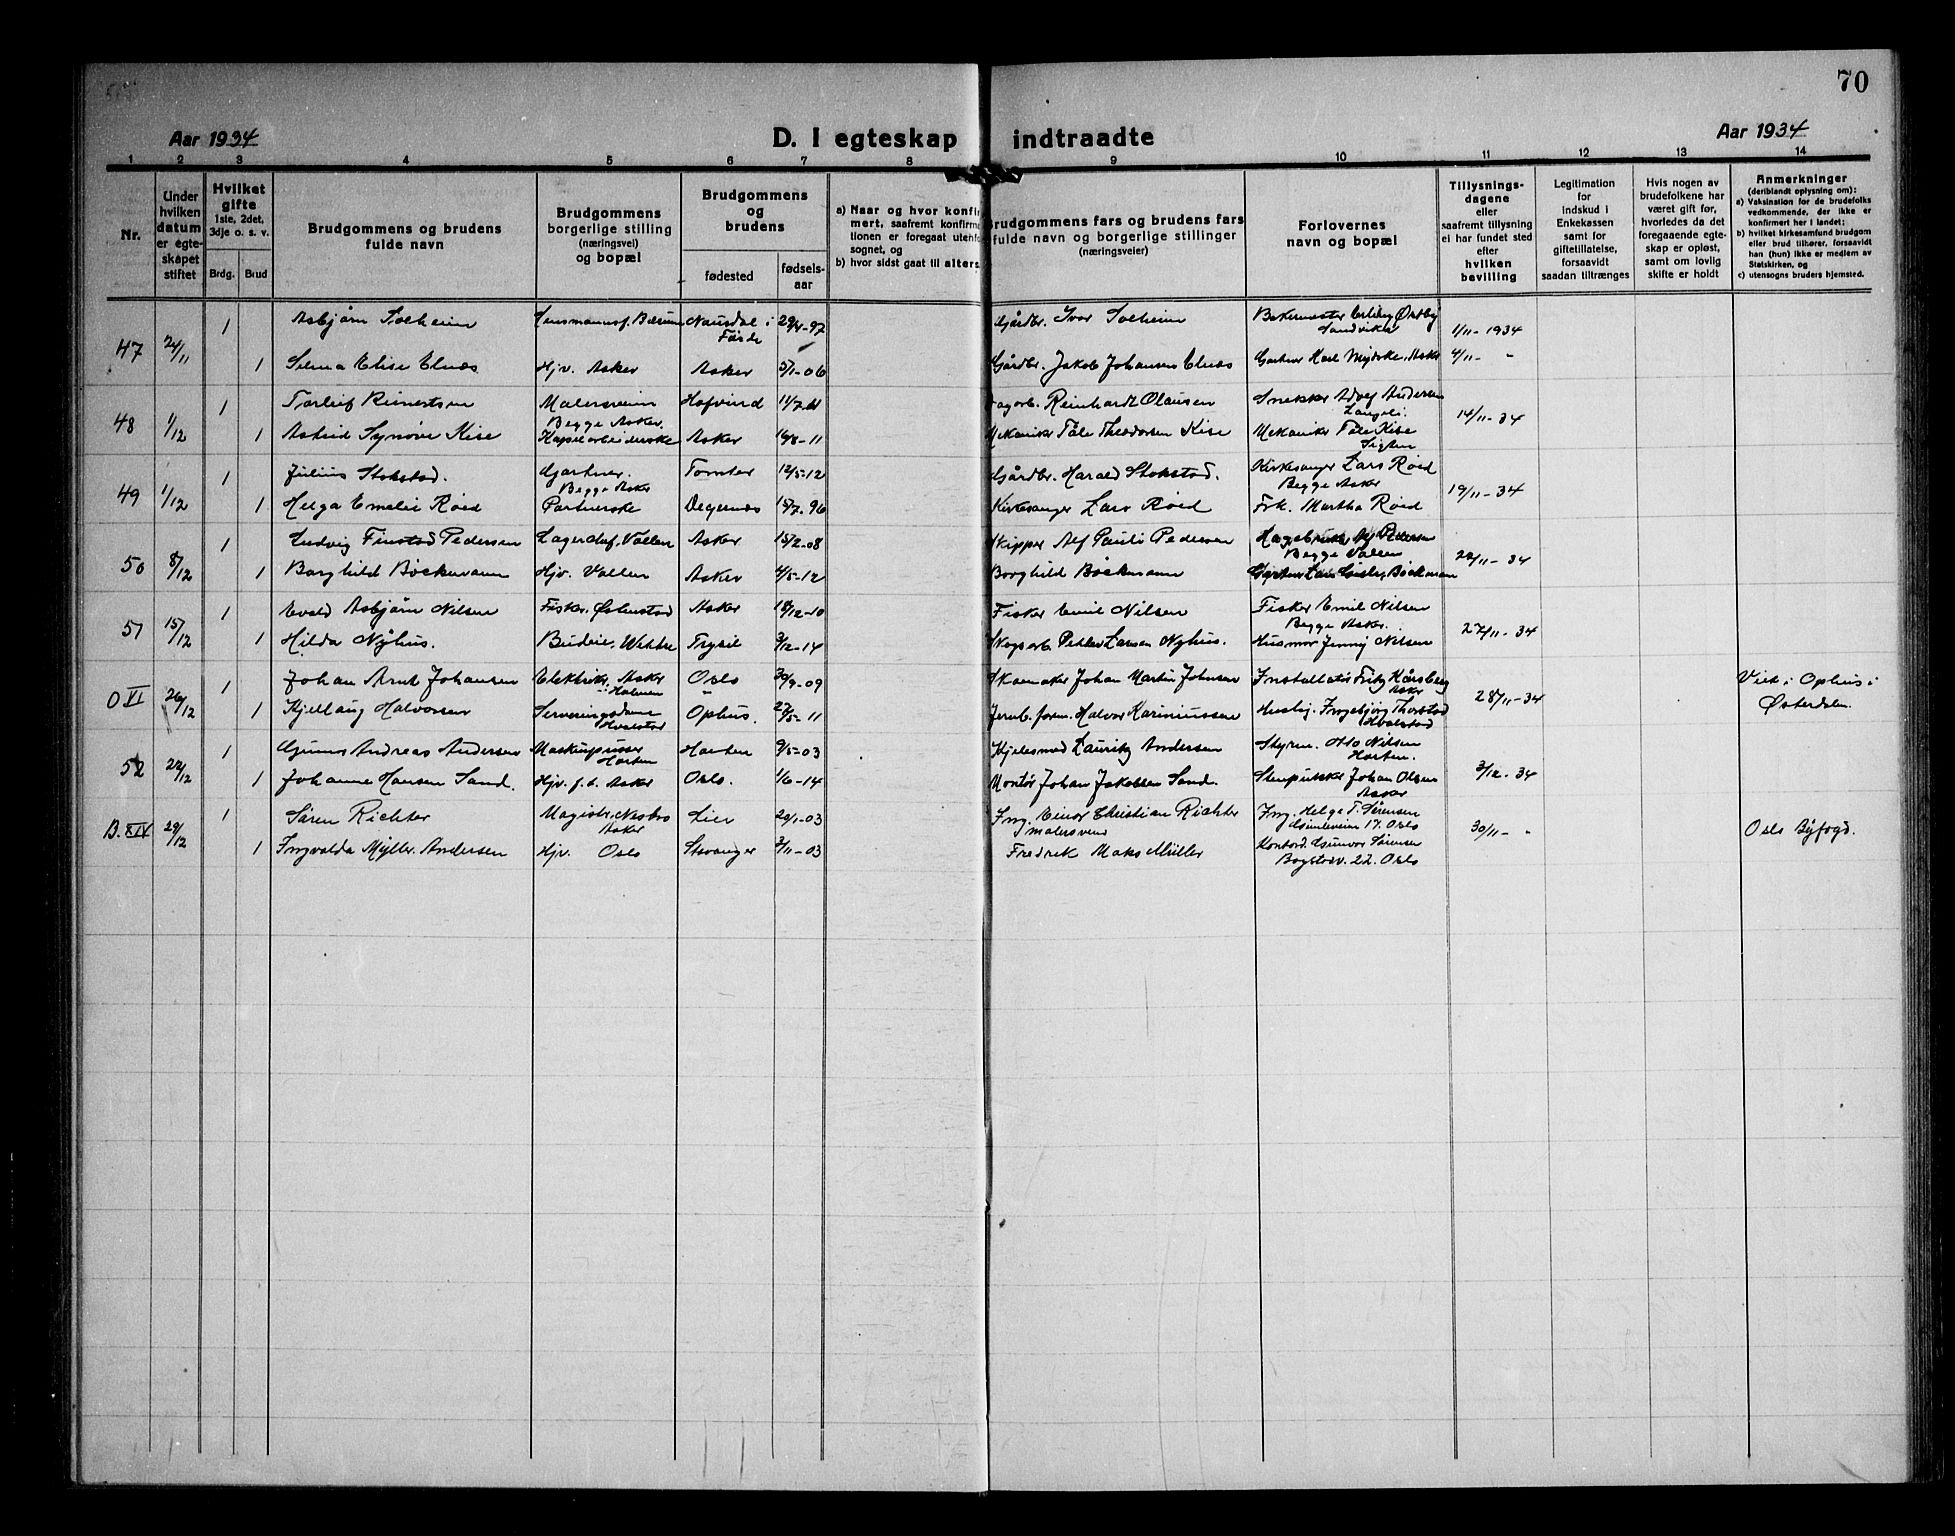 70
Aar 1934
D. I egteskap indtraadte
Aar 1934
1 2 3 4 5 6 7 8 9 10 11 12 13 14
Nr.
Under
hvilken
datum
er egte-
skapet
stiftet
Hvilket
gifte
1ste, 2det,
3dje o. s. v.
Brdg. Brud
Brudgommens og brudens
fulde navn
Brudgommens
borgerlige stilling
(næringsvei)
og bopæl
Brudgommens
og
brudens
fødested
fødsels-
aar
a) Naar og hvor konfir
mert, saafremt konfirma
tionen er foregaat utenfo
sognet, og
b) hvor sidst gaat til alters
Brudgommens fars og brudens fars
fulde navn og borgerlige stillinger
(næringsveier)
Forlovernes
navn og bopæl
Tillysnings-
dagene
eller
saafremt tillysning
ei har fundet sted
efter
hvilken
bevilling
Legitimation
for
indskud i
Enkekassen
samt for
giftetillatelse,
forsaavidt
saadan tiltrænges
Hvis nogen av
brudefolkene har
været gift før,
hvorledes da det
foregaaende egte-
skap er opløst,
samt om lovlig
skifte er holdt
Anmerkninger
(deriblandt oplysning om):
a) Vaksination for de brudefolks
vedkommende, der ikke er
konfirmert her i landet;
b) hvilket kirkesamfund brudgom
eller brud tilhører, forsaavidt
han (hun) ikke er medlem av
Statskirken, og
c) utensogns bruders hjemsted.
47 24/11 1 Asbjørn Solheim Lensmannsf. Bærum Nausdal i Førde 29/4-97 Gårdbr. Ivar Solheim Bakermester Erling Østby Sandvika 1/11-1934
1 Selma Elise Elnæs Hjv. Asker Asker 5/1-06 Gårdbr. Jakob Johansen Elnæs Gartner Karl Asker 4/11- "
48 1/12 1 Torleif Reinertsen Malersvenn Hofvind 11/7-11 Reinhardt Olausen Snekker Adolf Andersen 14/11-34
Begge Asker.
1 Astrid Synøve Kise Asker 16/8-11 Mekaniker Tåle Theodorsen Kise Mekaniker Tåle Kise
49 1/12 1 Julius Stokstad. Gartner. Tomter 12/5-12 Gårdbr. Harald Stokstad. Kirkesanger Lars Røed 19/11-34
Begge Asker Begge Asker
1 Helga Emelie Røed Degernes 15/7-96 Kirkesanger Lars Røed Frk. Martha Røed
50 8/12 1 Ludvig Finstad Pedersen Vollen Asker 15/2-08 Skipper Alf Pauli Pedersen Pedersen 22/11-34
Begge Vollen
1 Borghild Böckmann Hjv. Vollen Asker 4/5-12 Borghild Böckmann Böckmann
51 15/12 1 Evald Asbjørn Nilsen Fisker, Asker 18/12-10 Fisker Emil Nilsen Fisker Emil Nilsen 27/11-34
Begge Asker.
1 Hilda Nyhus. Budeie, Trysil 3/12-14 Larsen Nyhus. Husmor Jenny Nilsen
O VI 26/12 1 Johan Arnt Johansen Elektriker, Asker Oslo 30/9-09 Skomaker Johan Martin Johansen Installatør Fritz Asker 28/11-34 Viet i Ophus i
Holmen
1 Kjellaug Halvorsen Serveringsdame Hvalstad Ophus. 27/5-11 Halvor Karinius­sen Husbest. Ingebjørg Thorstad Hvalstad Østerdalen.
52 22/12 1 Gunnar Andreas Andersen Maskinpusser Horten Horten 9/5-03 Kjelesmed Lauritz Andersen Styrm. Otto Nilsen Horten. 3/12-34
1 Johanne Hansen Sand. Hjv. f.t. Asker Oslo. 1/6-14 Montør Johan Jakobsen Sand. Johan Olsen Asker
B. XIV 29/12 1 Søren Richter Magistr. Nesbru Asker Lier 20/1-03 Ing. Einar Christian Richter Ing. Helge T. Sørensen 17. Oslo 30/11- " Oslo Byfogd.
1 Ingvalda Müller Andersen Hjv. Oslo Stavanger 2/11-03 Malersvend Fredrik Maks Müller Kontord. Gunvor Sørensen
Bogstadv. 22. Oslo